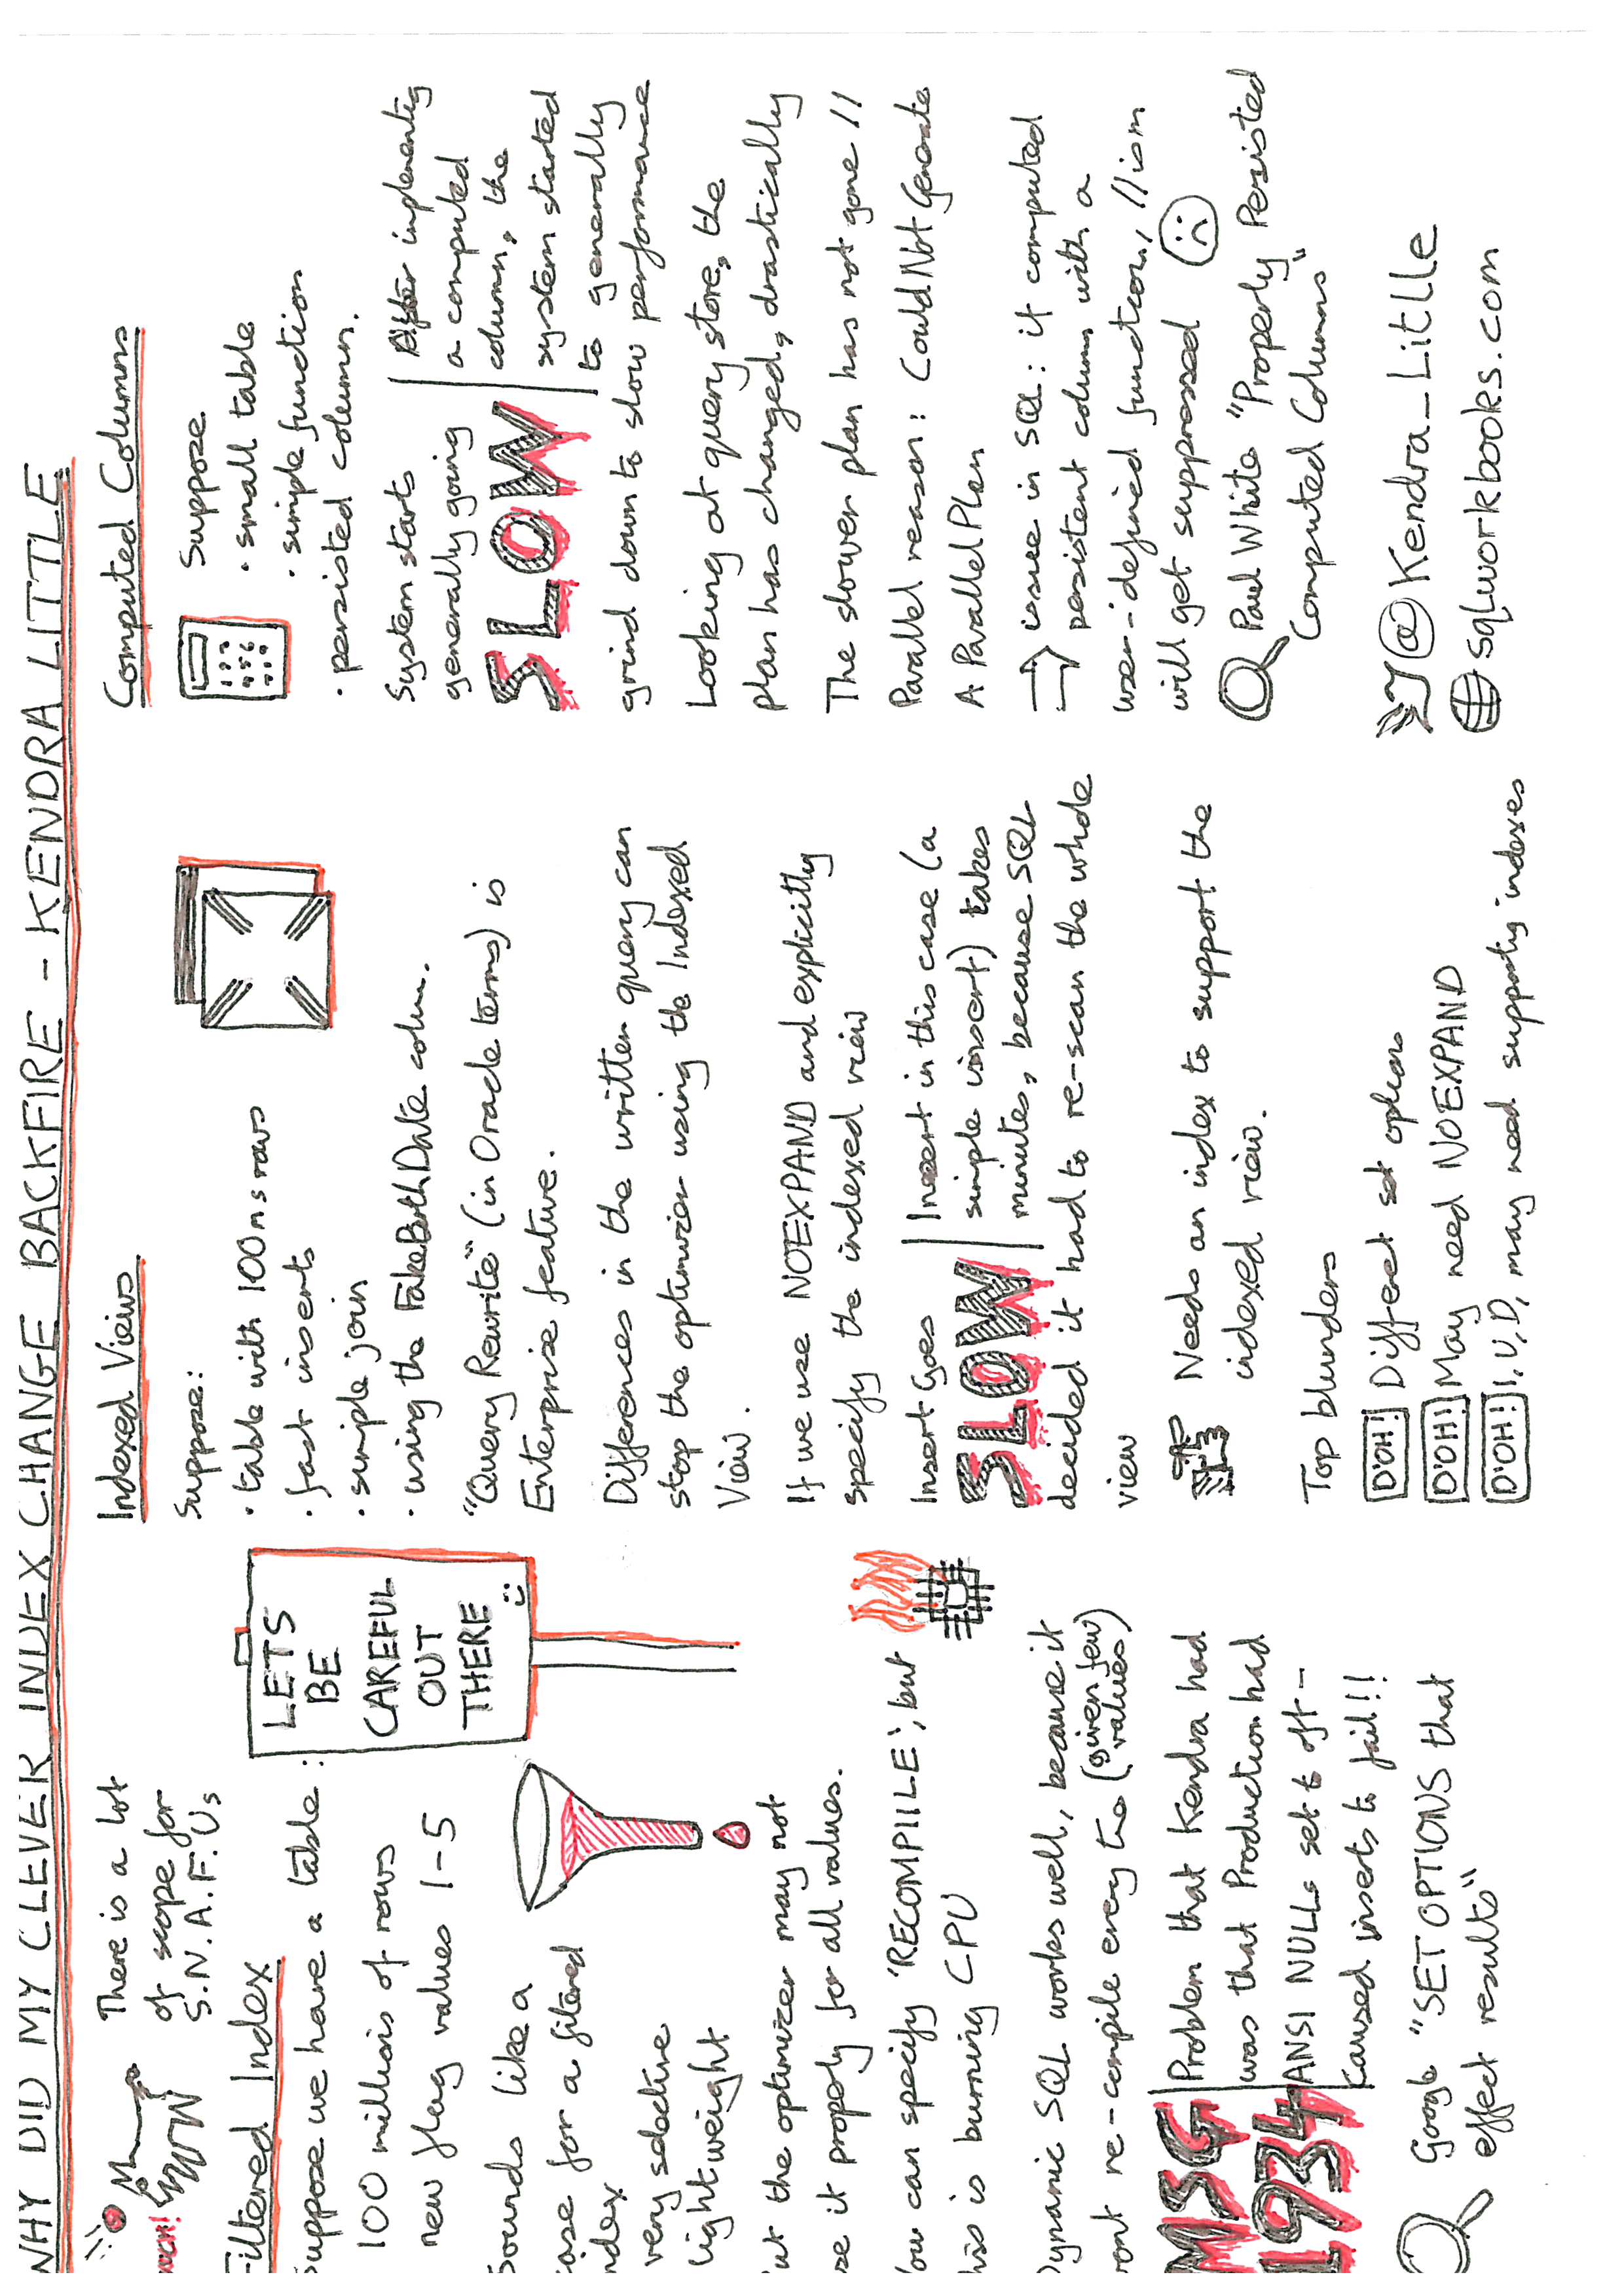 WHY DID MY CLEVER INDEX CHANGE BACKFIRE - KENDRA LITTLE
OUCH!
There is a lot
of scope for
S.N.A.F.Us
Filtered Index
Suppose we have a table:
100 millions of rows
new flag values 1-5
LETS
BE
CAREFUL
OUT
THERE
Sounds like a
case for a filtered
index
very selective
lightweight
But the optimizer may not
use it properly for all values.
You can specify 'RECOMPILE', but
this is burning CPU
Dynamic SQL works well, because it
wont re-compile every time (given few
values)
MSG
1934
Problem that Kendra had
was that Production had
ANSI NULLs set to off -
caused inserts to fail!!!
Google "SET OPTIONS that
effect results"
Indexed Views
Suppose:
· table with 100m s rows
· fast inserts
· simple join
· using the FakeBirthDate colum.
"Query Rewrite" (in Oracle terms) is
Enterprise feature.
Differences in the written query can
stop the optimizer using the Indexed
View.
If we use NOEXPAND and explicitly
specify the indexed view
Insert Goes
SLOW
Insert in this case (a
simple insert) takes
minutes, because SQL
decided it had to re-scan the whole
view
Needs an index to support the
indexed view.
Top blunders
D'OH! Different set options
D'OH! May need NOEXPAND
D'OH! I, U, D, may need supporting indexes
Computed Columns
Suppose
· small table
· simple function
· persisted column.
System starts
generally going
SLOW
After implementig
a computed
column, the
system started
to generally
grind down to slow performance
Looking at query store, the
plan has changed, drastically
The slower plan has not gone //
Parallel reason: CouldNotGenerate
A ParallelPlan
→ issue in SQL: if computed
persistent column with a
user-defined function, //ism
will get suppressed
Paul White "Properly Persisted
Computed Columns"
@Kendra_Little
sqlworkbooks.com